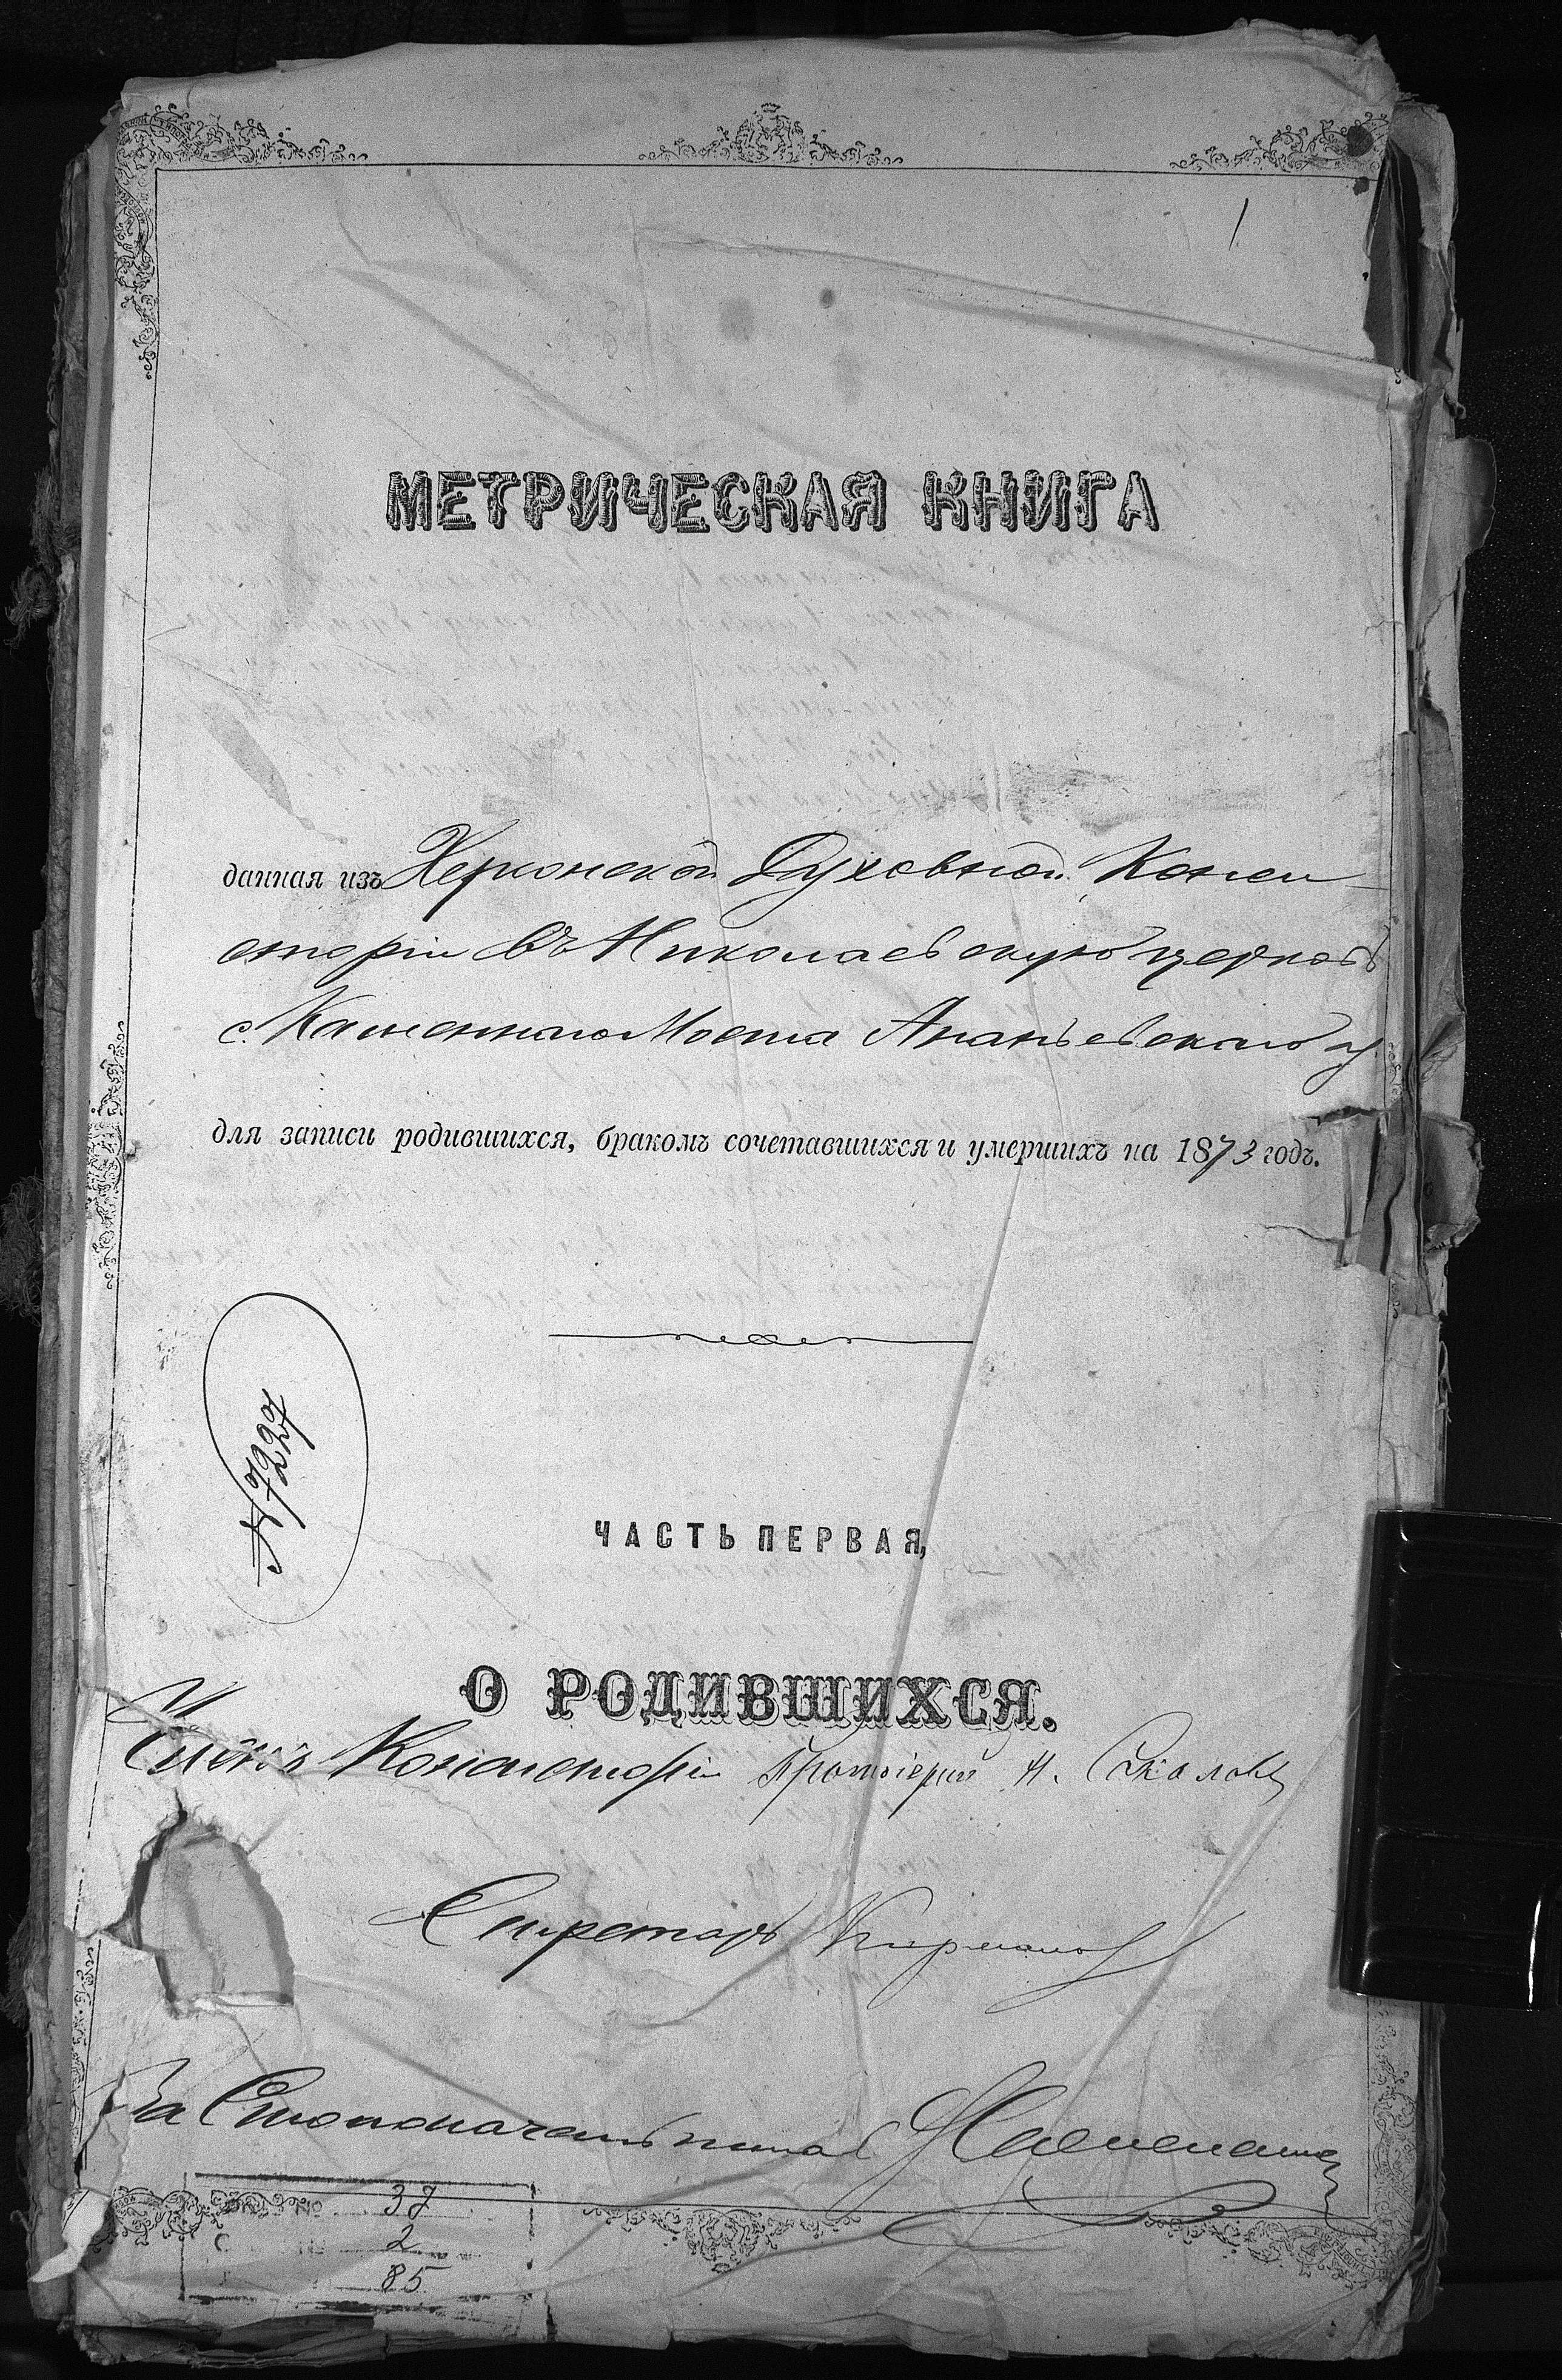 1
МЕТРИЧЕСКАЯ КНИГА
данная изъ Херсонской Духовной Конси-
сторіи въ Николаевскую церковь
с. Каменнаго Моста Ананьевскаго у.
для записи родившихся, бракомъ сочетавшихся и умершихъ на 1873 годъ.
№ 7227
ЧАСТЬ ПЕРВАЯ,
О РОДИВШИХСЯ.
Членъ Консисторіи Протоіерей Н. Соколовъ
Секретарь
За Столоначальника
37
2
85